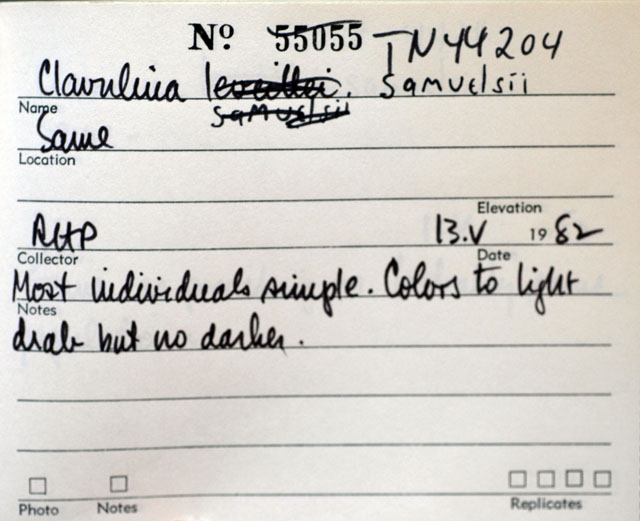 Nº 55055 TN44204
Clavulina leveillei. Samuelsii
Name
samuelsii
Same
Location
Elevation
RHP 13.V 1982
Collector Date
Most individuals simple. Colors to light
Notes
drab but no darker.
Photo Notes Replicates